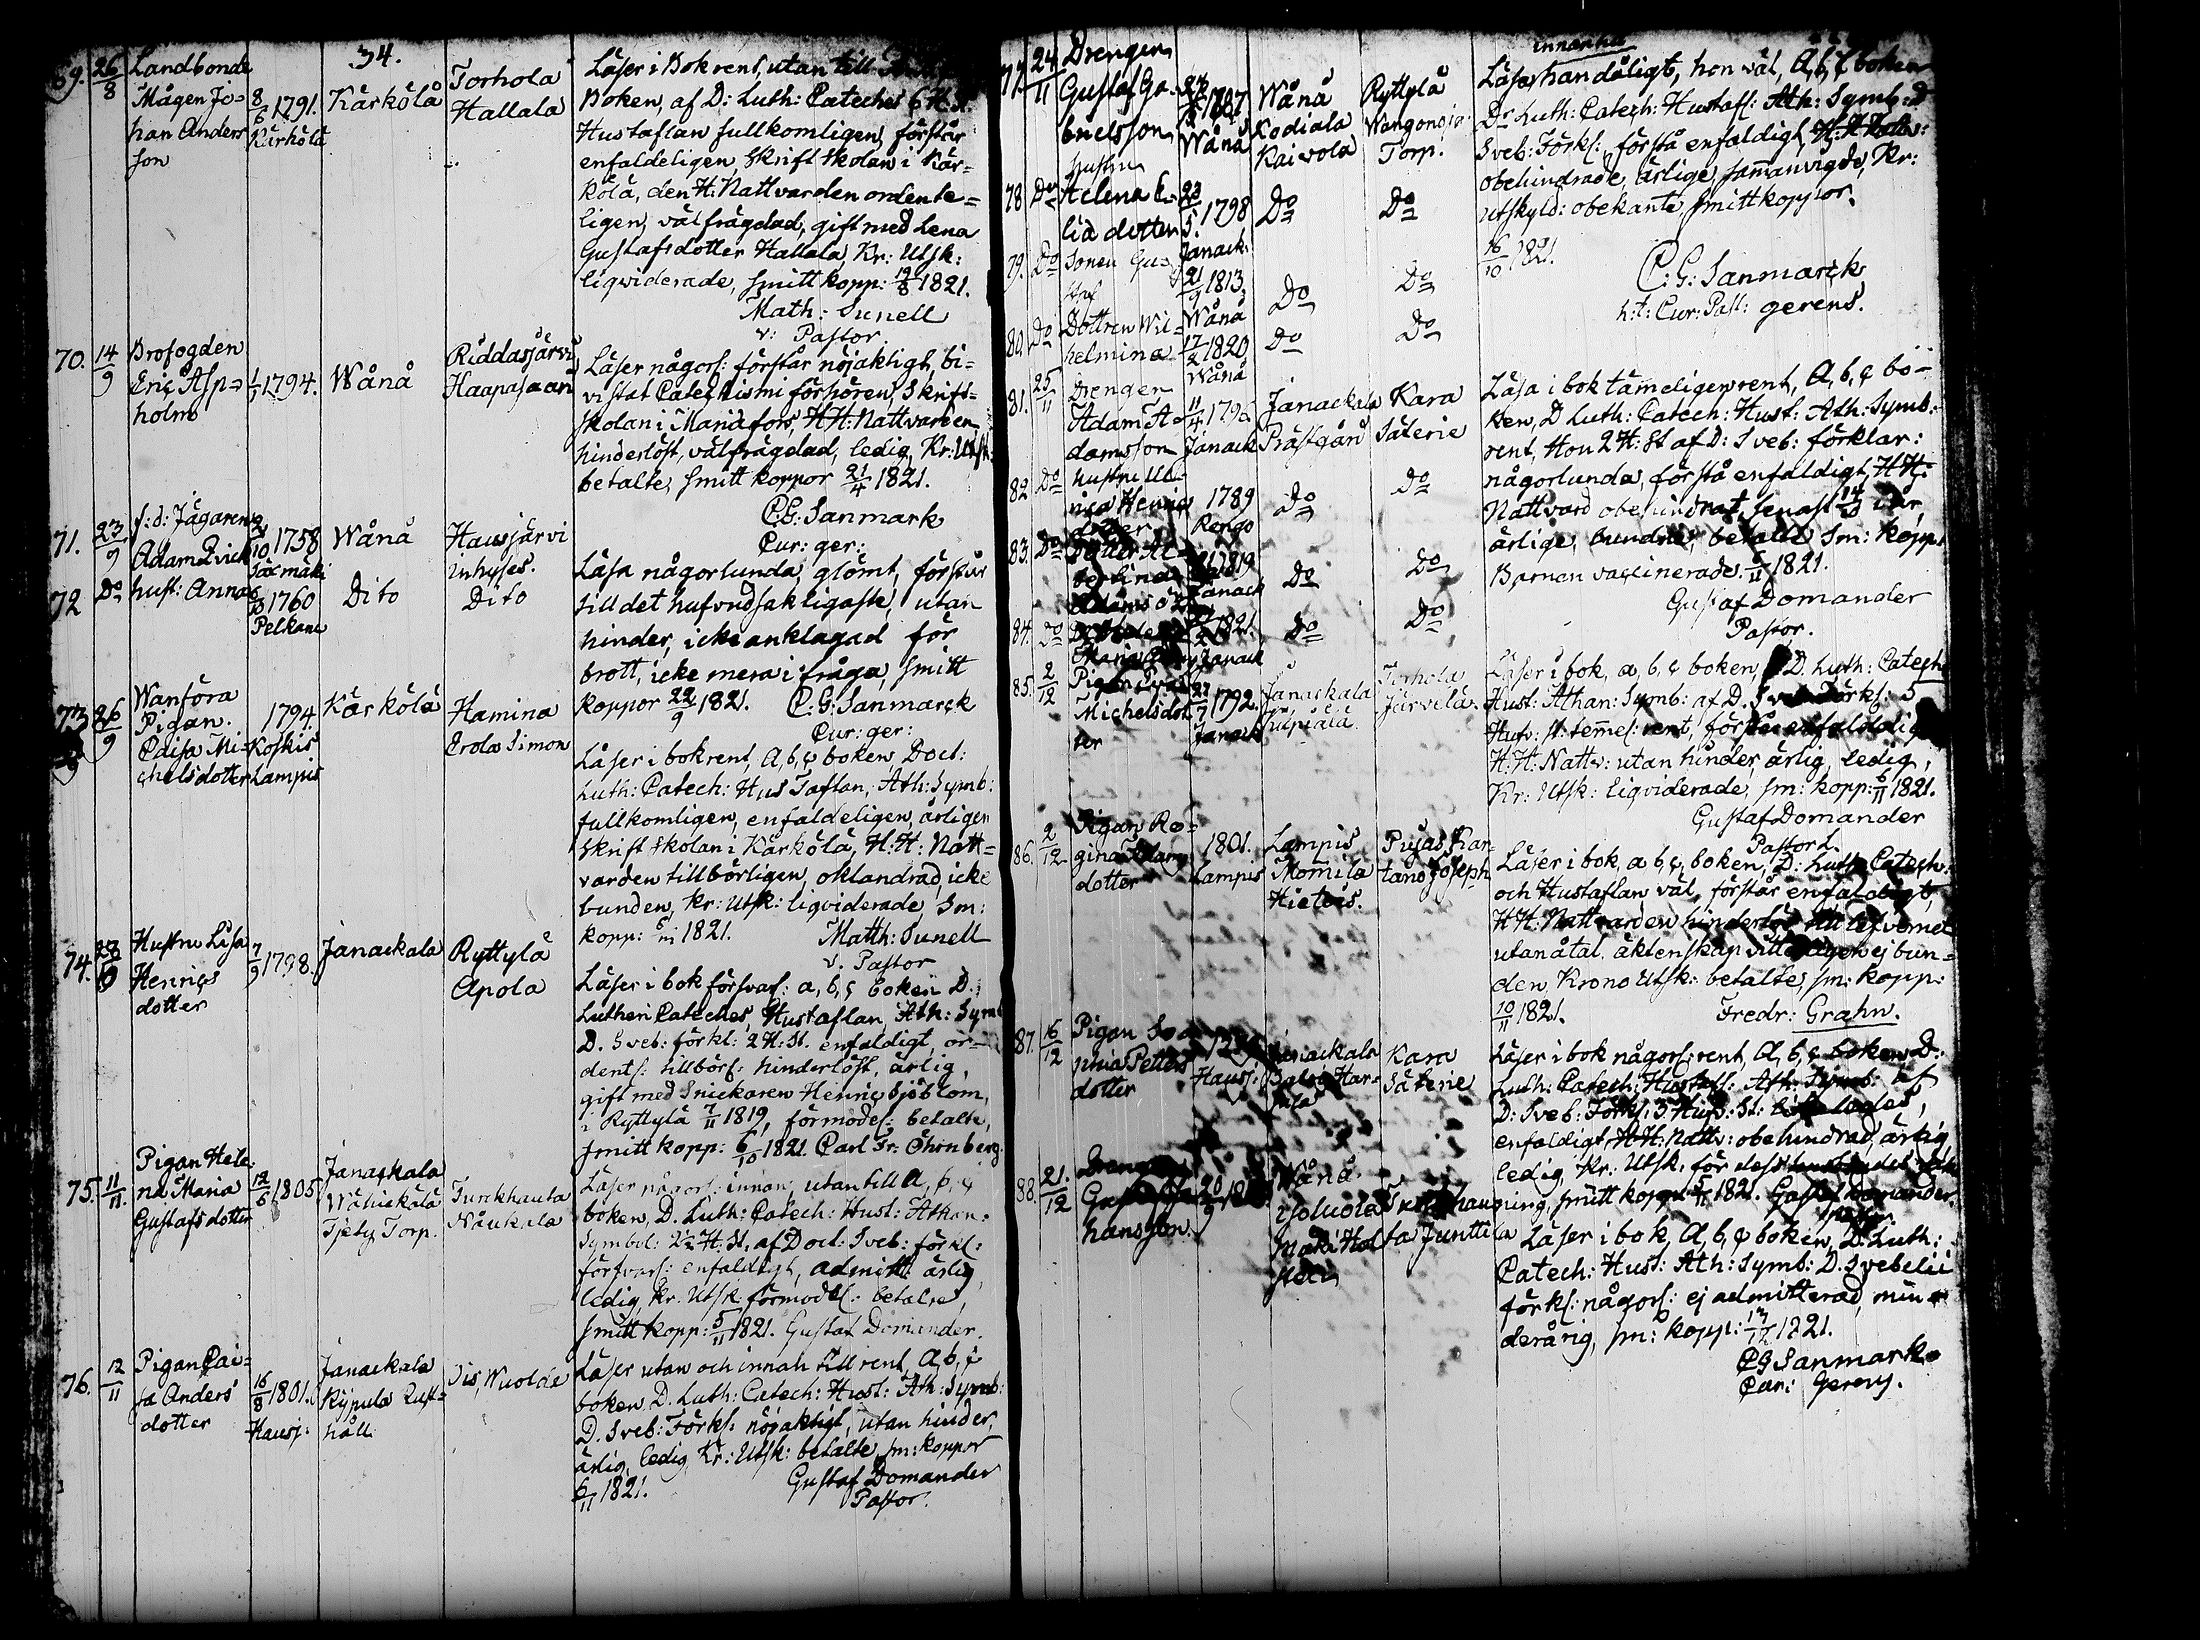 34.
69. 26/8 Landbonde
Mågen Jo=
han Anders
son
8/6 1791.
Kärkölä
Kärkölä
Torhola
Hallala
Läser i Bok rent, utan till
Boken, af D: Luth: Cateches 6 H. St.
Hustaflan fullkomligen, förstår
enfaldeligen, Skriftskolan i Kär=
kölä, den H: Nattvarden ordente=
ligen, välfrägdad, gift med Lena
Gustafsdotter Hallala, Kr: Utsk:
liqviderade, smittkopp: 19/8 1821.
Math: Sunell
v: Pastor
70. 14/9 Brofogden
Eric Asp=
holm
1/1 1794.
Wånå
Riddasjärvi
Haapasaari
Läser någorl: förstår nöjaktigt, bi=
vistat Catechismi förhören, Skrift=
skolan i Mariæfors, H H: Nattvarden
hinderlöst, välfrägdad, ledig, Kr: Utsk:
betalte, smittkoppor 21/4 1821.
C. G. Sanmark
Cur: ger:
71. 23/9 f: d: Jägaren
Adam Qvick
2/10 1758
Wånå
Hausjärvi
Inhyses.
72 Do hust: Anna
1760
Pelkane
Dito
Dito
Läsa någorlunda, glömt, förstår
till det hufvudsakligaste, utan
hinder, icke anklagad för
brott, icke mera i fråga, smitt
koppor 22/9 1821. C. G. Sanmarck
Cur: ger:
73 26/9 Wanföra
Pigan.
Caisa Mi=
chelsdotter
1794
Koskis
Lampis
Kärkölä
Hamina
Erola Simon
Läser i bok rent, A, b, c boken, Doct:
Luth: Catech: Hus Taflan, Ath: Symb:
fullkomligen, enfaldeligen, årligen
Skriftskolan i Kärkölä, H. H: Natt=
varden tillbörligen, oklandrad, icke
bunden, Kr: Utsk: liqviderade, Sm:
kopp: 1821. Matth: Sunell
v. Pastor
74. 28/9 Hustru Lisa
Henrics
dotter
7/9 1798.
Janackala
Ryttylä
Apola
Läser i bok försvarl: a, b, c boken D.
Lutheri Cateches, Hustaflan, Ath: Symb
D. Sveb: förkl: 2 H. St. enfaldigt, or=
dentl: tillbörl: hinderlöst, ärlig,
gift med Snickaren Henric Sjöblom,
i Ryttylä 7/11 1819, förmodel: betalte,
smittkopp: 6/10 1821. Carl Fr. Öhrnberg
75. 11/11. Pigan Hele
na Maria
Gustafsdotter
12/6 1805
Janackala
Wähickälä
Tjety Torp.
Turckhauta
Nåukala
Läser någorl: innan, utan till A, b, c
boken, D. Luth: Catech: Hust: Athan:
Symbol: 2½ H. St. af Doct: Sveb: förkl:
försvarl: enfaldigt, admitt: ärlig
ledig, Kr. Utsk förmodel: betalte,
smittkopp: 5/11 1821. Gustaf Domander.
76. 12/11 Pigan Cai=
sa Anders
dotter
16/8 1801.
Hausj:
Janackala
Rypula Rust=
håll.
Läser utan och innan till rent, A, b, c
boken, D. Luth: Catech: Hust: Ath: Symb:
D. Sveb: Förkl: nöjaktigt, utan hinder,
ärlig, ledig, Kr: Utsk: betalte, sm: koppor
6/11 1821. Gustaf Domander
Pastor.
77. 24/11 Drengen
Gustaf Ga=
brielsson
1787
Wånå
Wånå
Kodiala
Kaivola
Ryttylä
Torp.
78 Do Hustru
Helena E=
lia dotter
23/5 1798
Janack:
Do
Do
79. Do Sonen Gus=
taf
21/9 1813,
Wånå
Do
Do
80. Do Dottren Wil=
helmina
17/2 1820,
Wånå
Do
Do
innantill
Läsa, han dåligt, hon väl, A, b, c boken
Dr Luth: Catech: Hustafl: Ath: Symb: D
Sveb: Förkl: förstå enfaldigt, H: H Nattv:
obehindrade, ärlige, samanvigde, Kr:
Utskyld: obekante, smittkoppor.
16/10 1821.
C: G: Sanmarck
h: t: Cur: Past: gerens.
81. 25/11 Drengen
Adam A=
damsson
11/4 179
Janack
Janackala
Prästgård
Kara
Säterie
82 Do hustru Ul=
rica Henrics
dotter
1789
Rengo
Do
Do
83. Do
1819
Janack
Do
Do
84. Do
1821.
Janack
Do
Do
Läsa i bok tämeligen rent, A, b, c bo=
ken, D Luth: Catech: Hust: Ath: Symb:
rent, Hon 2 H: St af D: Sveb: förklar:
någorlunda, förstå enfaldigt, H H:
Nattvard obehindrat, senast i år,
ärlige, bundne, betalte Sm: kopp:
Barnen vaccinerade. 1821.
Gustaf Domander
Pastor.
85. 2/12 Pigan
Michelsdot
ter
1792.
Janack
Janackala
Torhola
Järvilä
Läser i bok, a, b, c boken, D. Luth: Catech:
Hust: Athan: Symb: af D. Sveb Förkl: 3
Hufv: St. temel: rent, förstår enfaldigt
H: H: Nattv: utan hinder, ärlig, ledig,
Kr: Utsk: liqviderade, sm: kopp: 6/11 1821.
Gustaf Domander
Pastor.
86. 2/12 Pigan Re=
gina
dotter
1801.
Lampis
Lampis
Momila
Hietois.
Pujas Kar=
tano Joseph
Läser i bok, a, b, c, boken, D: Luth: Catech:
och Hustaflan väl, förstår enfaldigt,
H H: Nattvarden hinderlöst, till lefvernet
utan åtal, äktenskap ej bun=
den Krono Utsk: betalte, sm: kopp:
10/11 1821. Fredr: Grahn.
87. 16/12 Pigan So=
phia Petters
dotter
Hausj:
Janackala
Kara
Säterie
Läser i bok någorl: rent, A, b, c boken D:
Luth: Catech: Hustafl: Ath: Symb: af
D: Sveb: Förkl: 3 Hufv: St:
enfaldigt, H H: Nattv: obehindrad, ärlig
ledig, Kr: Utsk: för dess
smittkoppor 1821. Gustaf Domander.
Pastor
88. 21./12 Drengen
Gustaf Jo=
hansson.
Wånå
Junttila
Läser i bok, A, b, c boken, D. Luth:
Catech: Hust: Ath: Symb: D. Svebelii
förkl: någorl: ej admitterad, min=
derårig, sm: kopp: 1821.
C G Sanmark
Cur: Gerens.